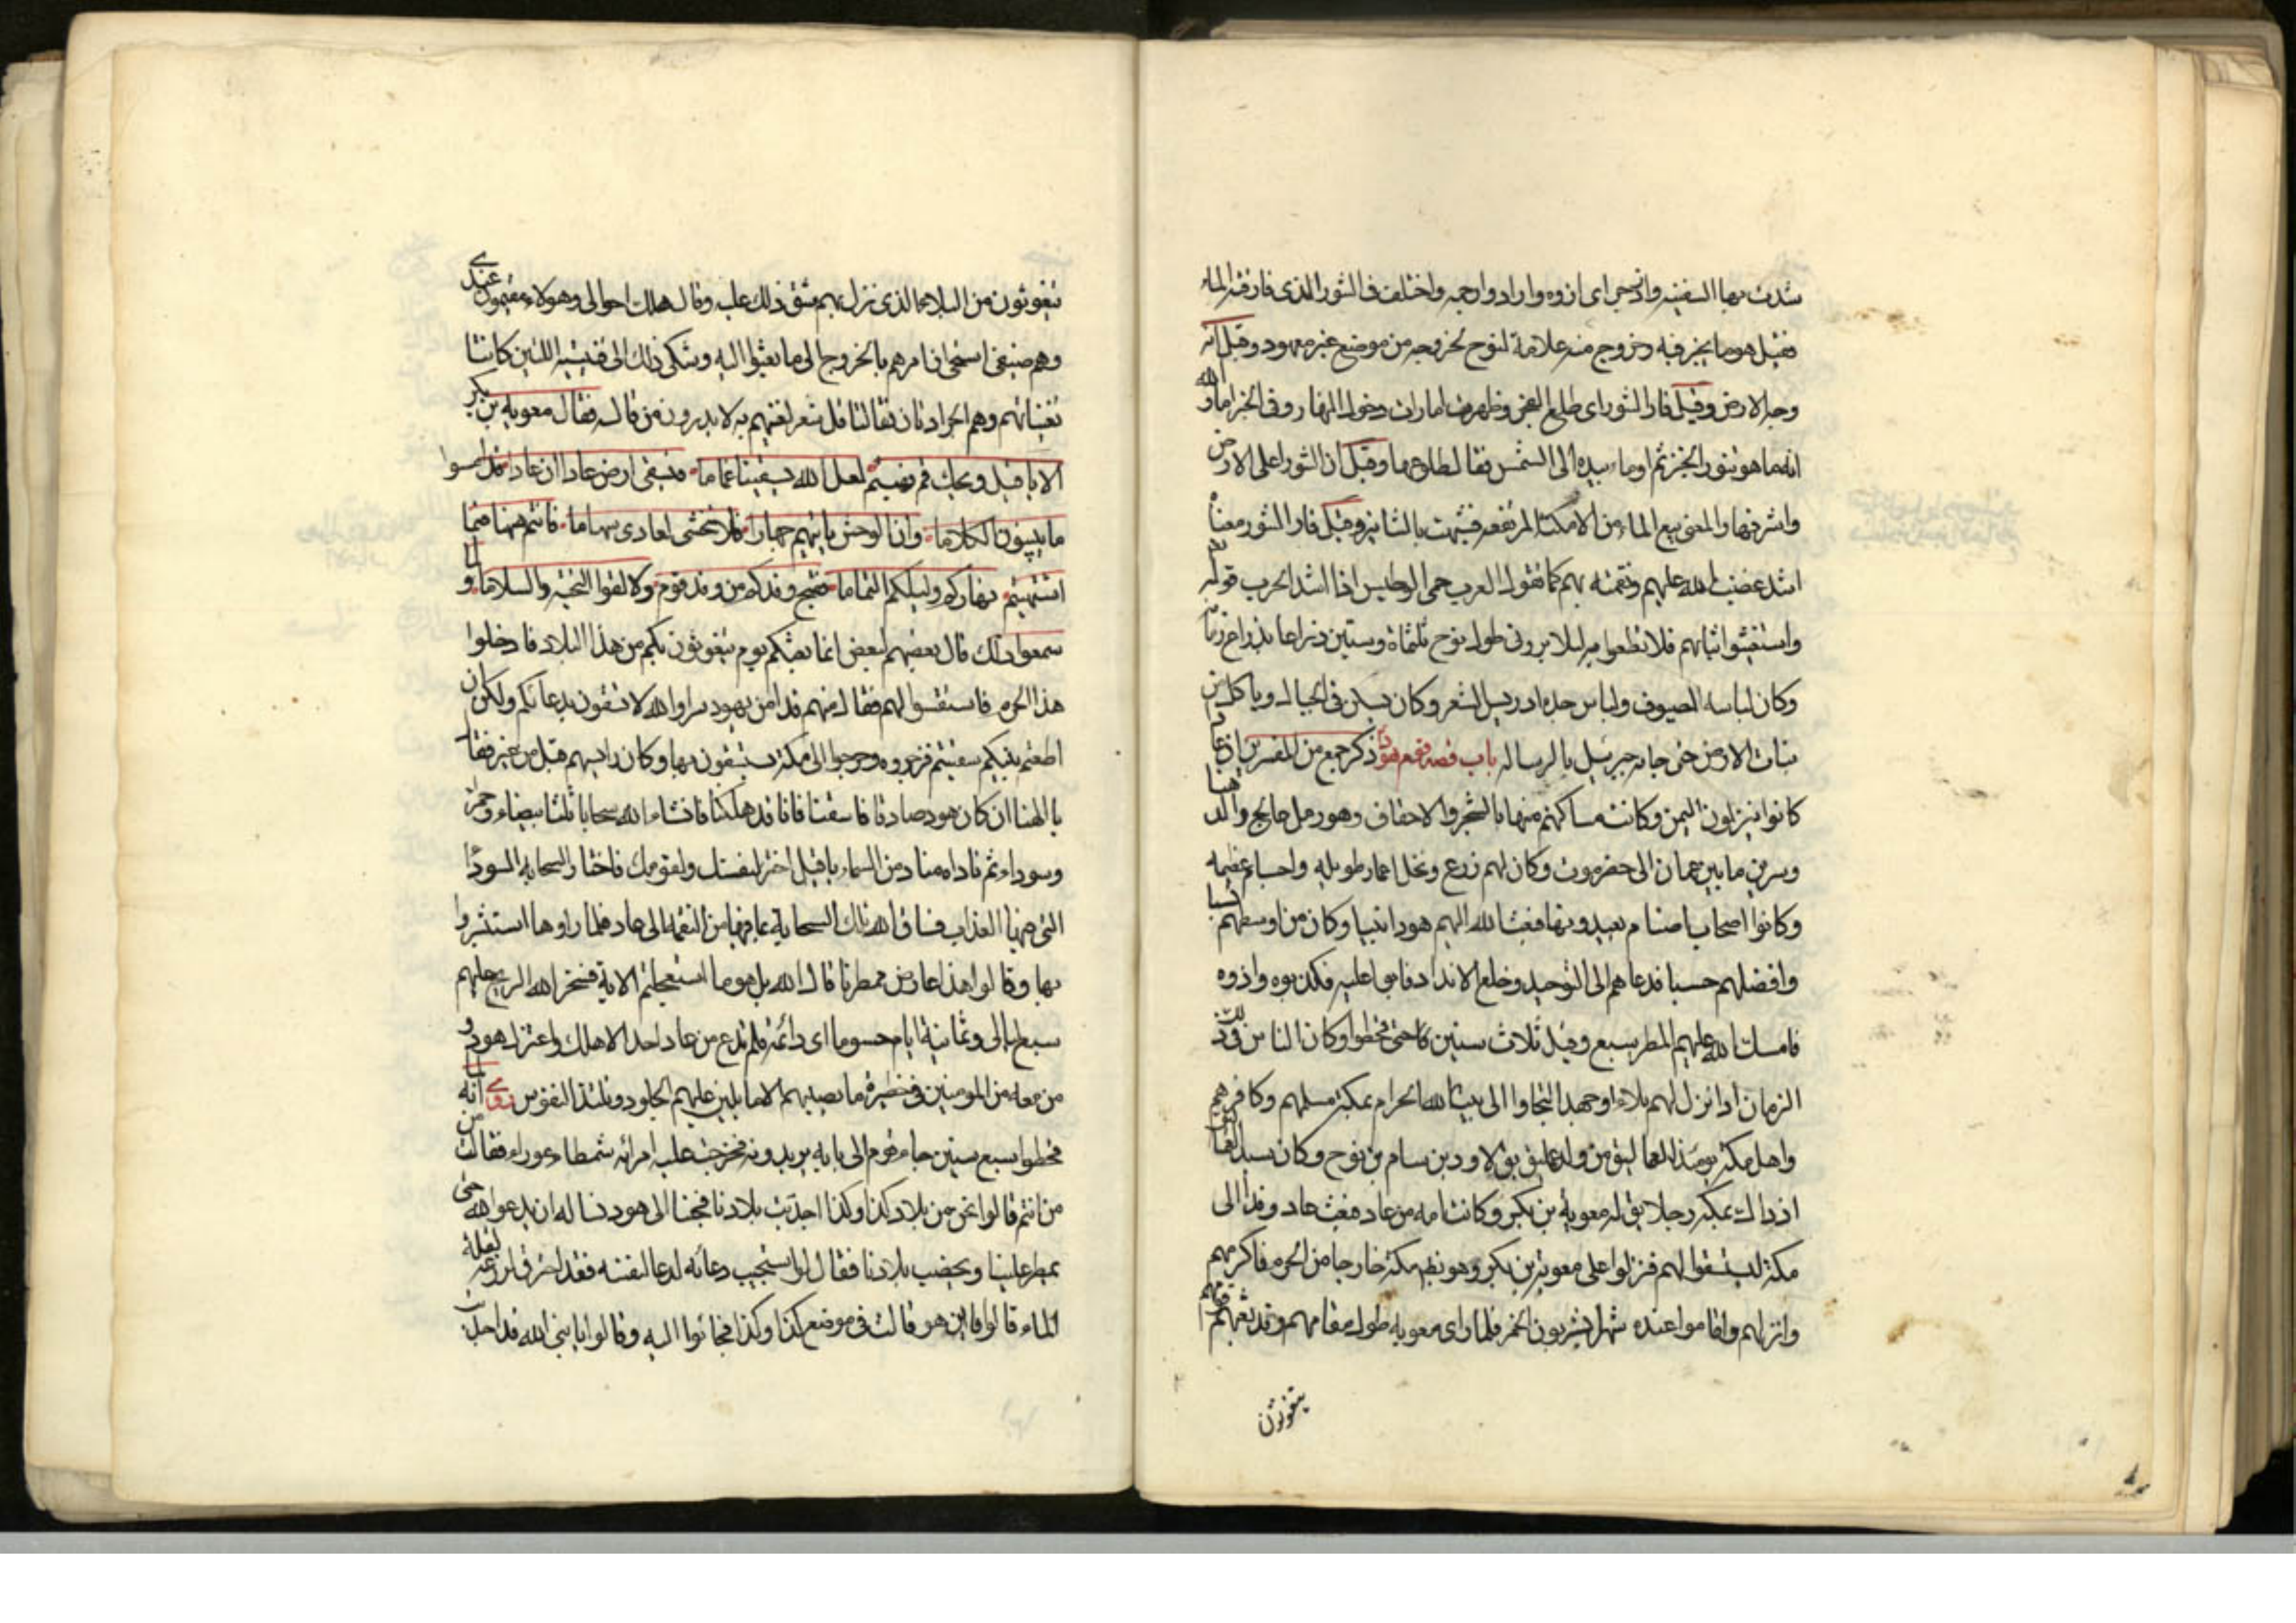 شدت بها السفينه وازدجر اى اذوه وارادوا رجمه واختلف فى التنور الذى فار منه الماء
فقيل هو ما يخبز فيه وخروج منه علامة لنوح لخروجه من موضع غير معهود وقيل انه
وجه الارض وقيل فار التنور اى طلع الفجر وظهرت امارات دخول النهار وفى الخبر اما والله
انه ما هو تنور الخبز ثم اوماء بيده الى الشمس فقال طلوعها وقيل ان التنور اعلى الارض
واشرفها والمعنى نبع الماء من الامكنة المرتفعه فشبهت بالتنانير وقيل فار التنور معناه
اشتد غضب الله عليهم ونقمته بهم كما تقول العرب حمى الوطيس اذا اشتد الحرب قوله تم
واستغشوا ثيابهم فلا تطعوا ليلا يروني طول نوح ثلثماة وستين ذراعا بذراع زمانه
وكان لباسه الصوف ولباس جده ادريس الشعر وكان يسكن فى الجبال وياكل من
نبات الارض حتى جاءه جبرئيل بالرساله باب قصه قوم هود ذكر جمع من المفسرين ان عادا
كانوا ينزلون اليمن وكانت مساكنهم منها بالشجر والاحقاف وهو رمل عالج والدهنا
وبيرين ما بين عمان الى حضرموت وكان لهم زرع ونخل اعمار طويله واجسام عظيمه
وكانوا اصحاب اصنام يعبدونها فبعث الله اليهم هودا نبيا وكان من اوسطهم نسبا
وافضلهم حسبا فدعاهم الى التوحيد وخلع الانداد فابوا عليه فكذبوه واذوه
فامسك الله عليهم المطر سبع وقيل ثلاث سنين حتى قحطوا وكان الناس فى ذلك
الزمان اذا نزل لهم بلاء او جهد التجاوا الى بيت الله الحرام بمكة مسلمهم وكافرهم
واهل مكة يومئذ العماليق من ولد عمليق بن لاود بن سام بن نوح وكان سيد العماليق
اذ ذاك بمكة رجلا يق له معويه بن بكر وكانت امه من عاد فبعث عاد وفدا الى
مكة ليستسقوا لهم فنزلوا على معويه بن بكر وهو بظهر مكة خارجا من الحرم فاكرمهم
وانزلهم واقاموا عنده شهرا يشربون الخمر فلما راى معويه طول مقامهم وقد بعثهم قومهم
يتغوثون
يتغوثون من البلاء الذى نزل بهم شق ذلك عليه وقال هلك اخوالى وهولاء مقيمون عندى
وهم ضيفى استحى ان امرهم بالخروج الى ما بعثوا اليه وشكى ذلك الى قينتيه اللتين كانتا
تغنيانهم وهم الجرادتان فقالتا قل شعرا نغنيهم به لا يدرون من قاله فقال معويه بن بكر
الا يا قيل ويحك قم فهينم لعل الله يسقينا غماما فيسقى ارض عاد ان عادا قد امسوا
ما يبينون الكلاما وان الوحش ياتيهم جهارا فلا تخشى لعادى سهاما فانتم ههنا فيما
اشتهيتم نهاركم وليلكم التماما فقبح وفدكم من وفد قوم ولا لقوا التحيه والسلاما فلما
سمعوا ذلك قال بعضهم لبعض انما بعثكم قومكم يتغوثون بكم من هذا البلاء فادخلوا
هذا الحرم فاستسقوا لهم فقال منهم قد امن بهود سرا والله لا تسقون بدعائكم ولكن ان
اطعتم نبيكم سقيتم فزجروه وخرجوا الى مكة يستسقون بها وكان راسهم قيل بن عنز فقال
يا الهنا ان كان هود صادقا فاسقنا فانا قد هلكنا فانشاء الله سحابا ثلثا بيضاء وحمراء
وسوداء ثم ناداه مناد من السماء يا قيل اختر لنفسك ولقومك فاختار السحابه السوداء
التى فيها العذاب فساق الله تلك السحابة بما فيها من النقمه الى عاد فلما راوها استبشروا
بها وقالوا هذا عارض ممطرنا قال الله بل هو ما استعجلتم الاية فسخر الله الريح عليهم
سبع ليالى وثمانية ايام حسوما اى دائمه فلم تدع من عاد احدا الا هلك واعتزل هود و
من معه من المومنين فى حظيرة ما يصيبهم الا ما يلين عليهم الجلود وتلتذ النفوس انه لما
قحطوا سبع سنين جاء قوم الى بابه يريدونه فخرجت عليه امراته شمطاء عوراء فقالت من
من انتم قالوا نحن من بلاد كذا وكذا اجدبت بلادنا فجئنا الى هود نساله ان يدعو الله حتى
يمطر علينا ويخصب بلادنا فقال لو استجيب دعائه لدعا لنفسه فقد احترق زرعه لقلة
الماء قالوا فاين هو قالت فى موضع كذا وكذا فجائوا اليه وقالوا يا نبى الله قد اجدبت